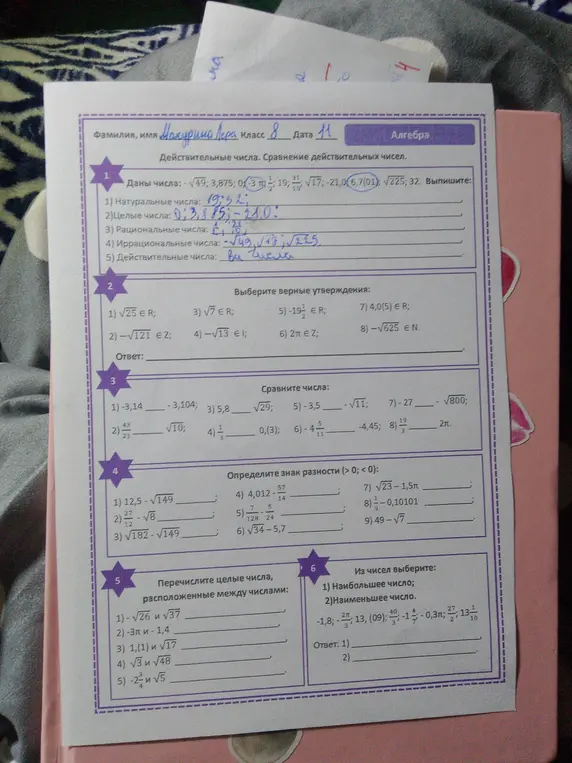 Фамилия, имя Класс 8 Дата 11 Алгебра
Действительные числа. Сравнение действительных чисел.
1
Даны числа: -√49; 3,875; 0; -3 π; 19; √17; -21,0; 6,7(01); √225; 32. Выпишите:
1) Натуральные числа: 19; 32;
2)Целые числа: 0; 3,875; -21,0;
3) Рациональные числа:
4) Иррациональные числа: -√49, √17; √225
5) Действительные числа: Все числа
2
Выберите верные утверждения:
1) √25 ∈ R; 3) √7 ∈ R; 5) -19 1/2 ∈ R; 7) 4,0(5) ∈ R;
2) -√121 ∈ Z; 4) -√13 ∈ I; 6) 2π ∈ Z; 8) -√625 ∈ N.
Ответ:
3
Сравните числа:
1) -3,14 ____ - 3,104; 3) 5,8 ____ √29; 5) - 3,5 ____ - √11; 7) - 27 ____ - √800;
2) ____ √10; 4) 1/3 ____ 0,(3); 6) - 4 5/11 ____ -4,45; 8) 19/3 ____ 2π.
4
Определите знак разности (> 0; < 0):
1) 12,5 - √149 ____; 4) 4,012 - 57/14 ____; 7) √23 – 1,5π ____;
2) 27/12 - √8 ____; 5) 7/128 - 5/24 ____; 8) 1/9 – 0,10101 ____;
3) √182 - √149 ____; 6) √34 – 5,7 ____; 9) 49 – √7 ____.
5
Перечислите целые числа,
расположенные между числами:
1) - √26 и √37
2) -3π и - 1,4
3) 1,(1) и √17
4) √3 и √48
5) -2 3/4 и √5
6
Из чисел выберите:
1) Наибольшее число;
2)Наименьшее число.
-1,8; - 2π/3; 13, (09); 40/3; - 0,3π; 27/2; 13 1/10
Ответ: 1)
2)